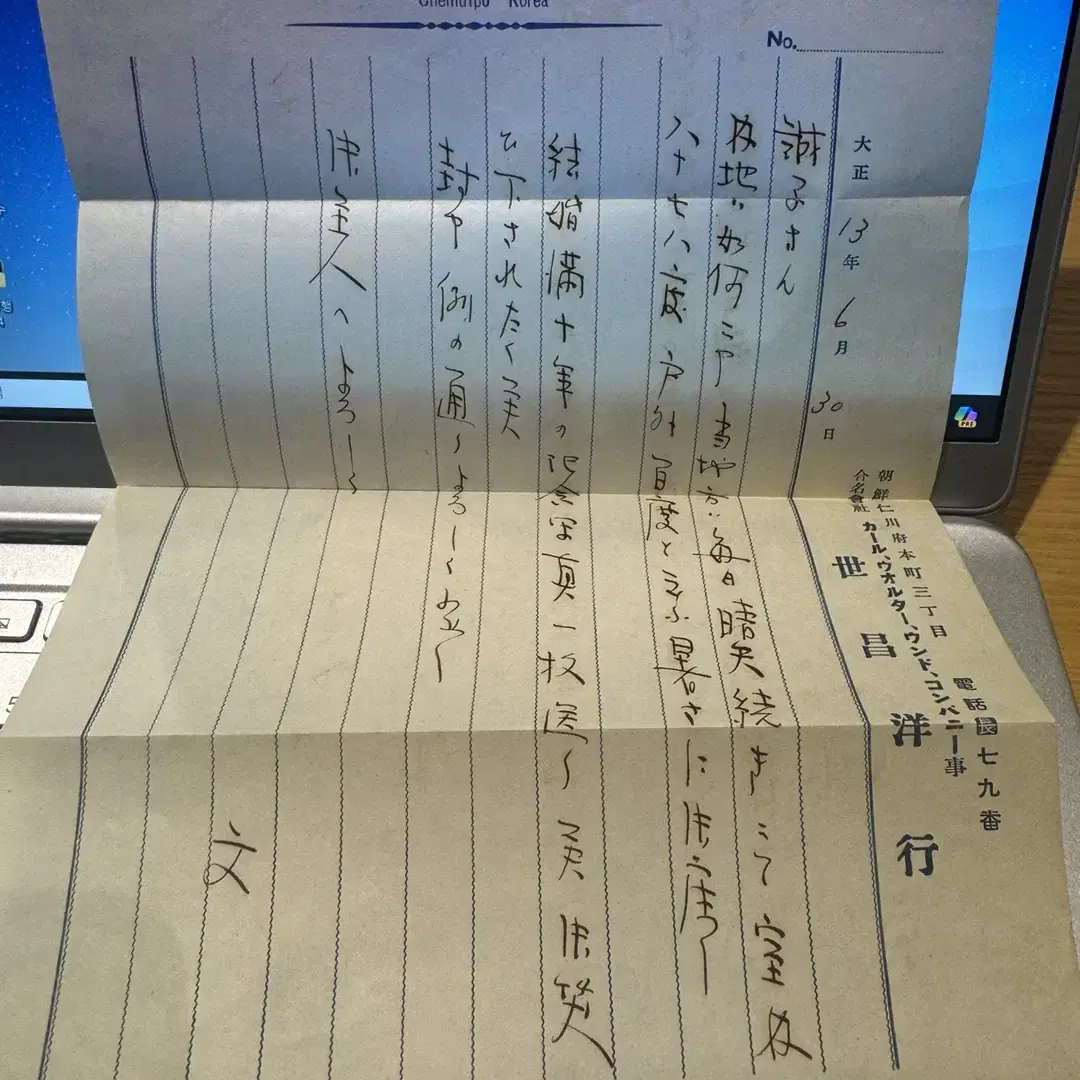 Chemulpo Korea
No.
朝鮮仁川府本町三丁目 電話長七九番
合名會社 カール、ヴオルター、ウンド、コンパニー事
世昌洋行
大正13年6月30日
子さん
地は如何に 当地方は毎日晴天続きにて室内
八十七八度戸外百度と云ふ暑さに
結婚満十年の記念写真一枚送り 笑
下されたく
封中例の通りよろしく
主人へよろしく
文